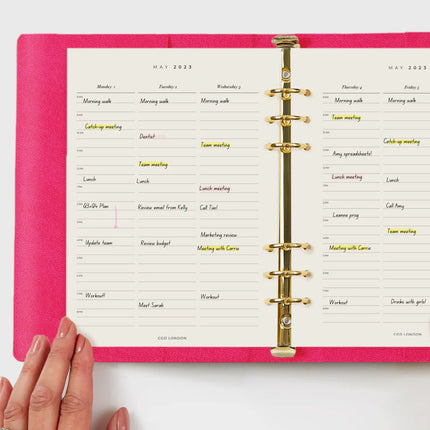 MAY 2023
Monday 1
Morning walk
Catch-up meeting
Lunch
Q3+Q4 Plan
Update team
Workout!
Tuesday 2
Morning walk
Dentist
Team meeting
Lunch
Review email from Kelly
Review budget
Meet Sarah
Wednesday 3
Morning walk
Team meeting
Lunch meeting
Call Tax!
Marketing review
Meeting with Carrie
Workout
CGD LONDON
MAY 2023
Thursday 4
Morning walk
Team meeting
Amy spreadsheets!
Lunch meeting
Leanne prog
Meeting with Carrie
Workout!
Friday 5
Morning walk
Catch-up meeting
Lunch
Call Amy
Team meeting
Drinks with girls!
CGD LONDON